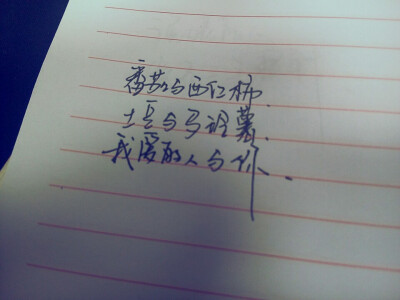 番茄与西红柿
土豆与马铃薯
我爱的人与你..